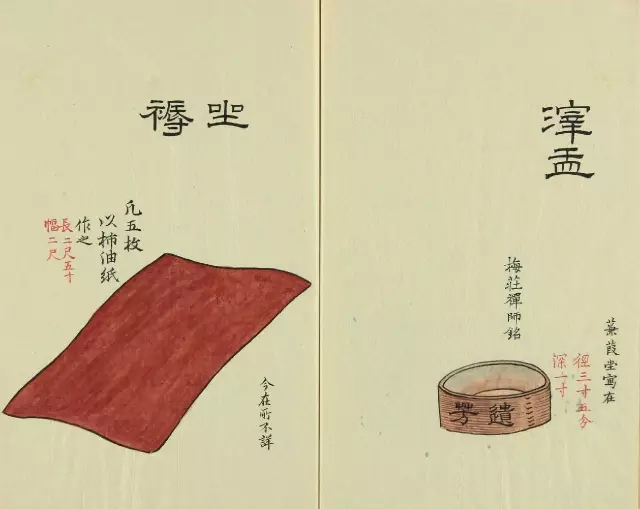 滓盂
蒹葭堂寫在
徑三寸五分
深一寸
梅莊禪師銘
遺芳
坐褥
凡五枚
以柿油紙
作之
長二尺五寸
幅二尺
今在所不詳